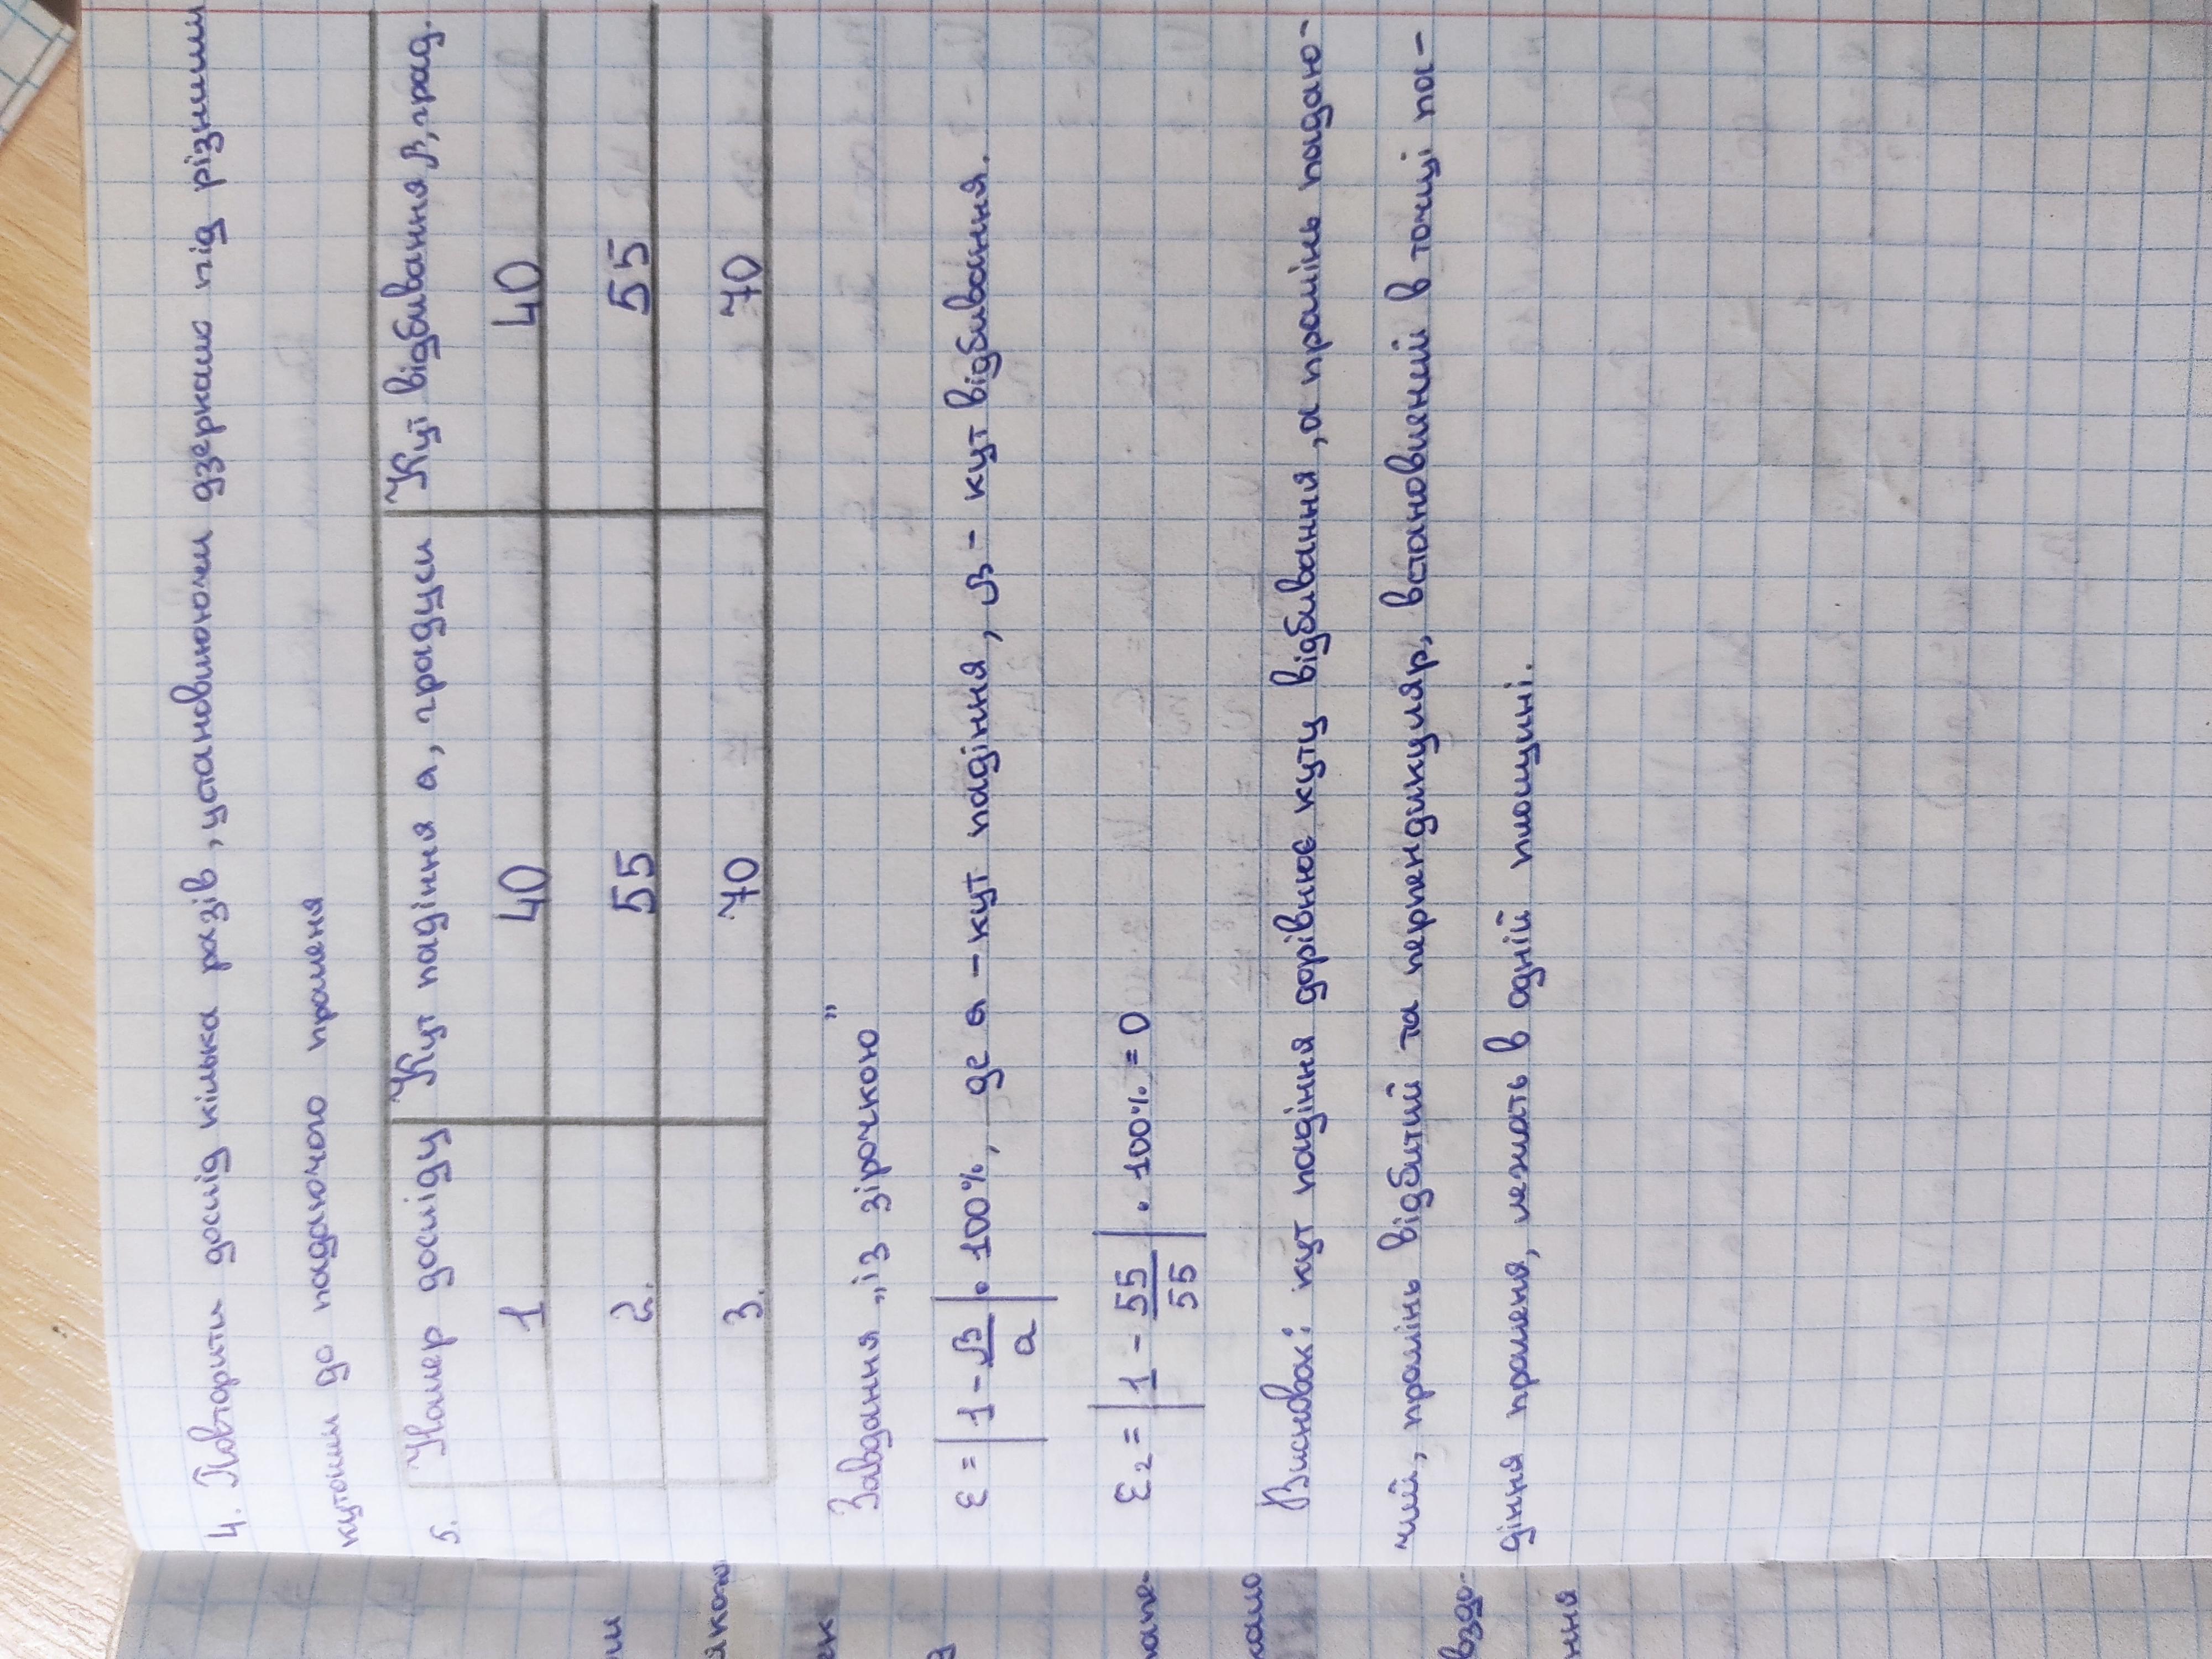 4. Повторити дослід кілька разів, установивюючи дзеркало під різними
кутами до падаючого променя
5. Номер досліду Кут падіння a, градуси Кут відбивання β, град.
1. 40 40
2. 55 55
3. 70 70
Завдання „із зірочкою”
ε = |1 - β/a| • 100%, де a - кут падіння, β - кут відбивання.
ε2 = |1 - 55/55| • 100% = 0
Висновок: кут падіння дорівнює куту відбивання, а промінь падаю-
чий, промінь відбитий та перпендикуляр, встановлений в точці па-
діння променя, лежать в одній площині.